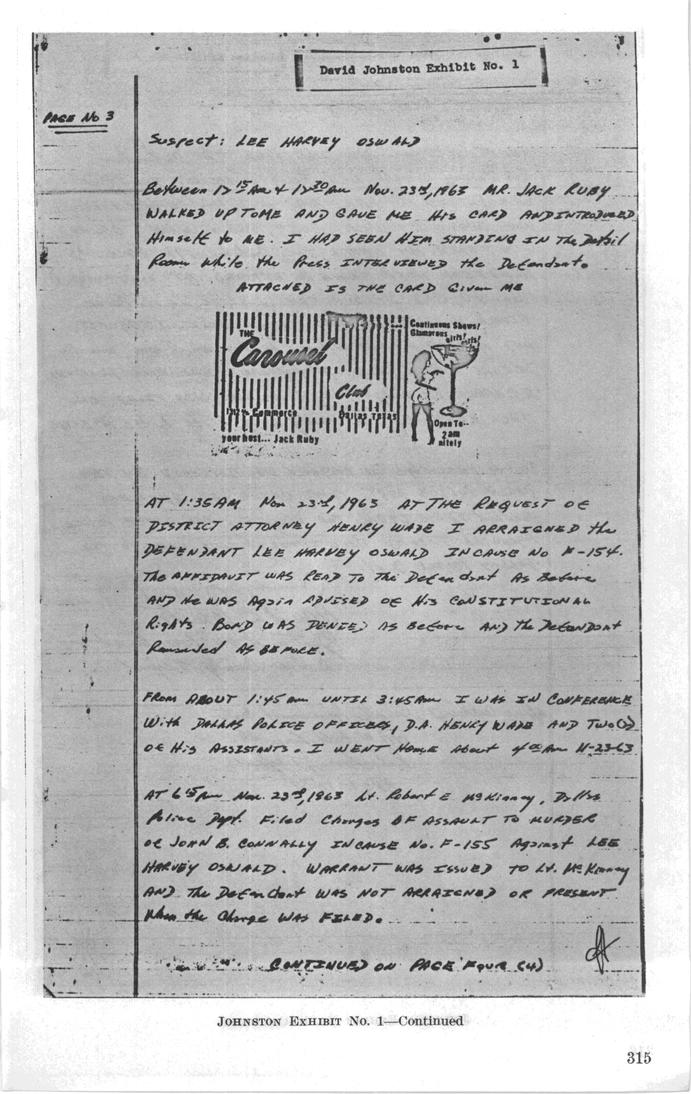 David Johnston Exhibit No. 1
PAGE No 3
Suspect: LEE HARVEY OSWALD
Between 12 15 Am & 12 30 Am Nov. 23rd, 1963 MR. JACK RUBY
WALKED UP TO ME AND GAVE ME His CARD AND INTRODUCED
Himself to ME. I HAD SEEN HIM STANDING IN The Detail
Room While the Press INTERVIEWED the Defendant.
ATTACHED IS THE CARD Given ME
THE
Carousel
Club
Commerce Dallas Texas
your host... Jack Ruby
Continuous Shows!
Glamorous
girls! girls!
Open To--
2 am
nitely
AT 1:35 AM Nov 23rd, 1963 AT THE REQUEST OF
DISTRICT ATTORNEY HENRY WADE I ARRAIGNED the
DEFENDANT LEE HARVEY OSWALD IN CAUSE No F-154.
The AFFIDAVIT WAS READ TO The Defendant As Before
AND He WAS Again ADVISED OF His CONSTITUTIONAL
Rights. BOND WAS DENIED AS Before AND The Defendant
Remanded AS BEFORE.
FROM ABOUT 1:45 am UNTIL 3:45 Am I WAS IN CONFERENCE
With DALLAS POLICE OFFICERS, D.A. HENRY WADE AND TWO (2)
OF His ASSISTANTS. I WENT Home About 4 00 Am 11-23-63
AT 6 15 Nov. 23rd, 1963 Lt. Robert E McKinney, Dallas
Police Dept. Filed Charges OF ASSAULT TO MURDER
OF JOHN B. CONNALLY IN CAUSE No. F-155 Against LEE
HARVEY OSWALD. WARRANT WAS ISSUED TO Lt. McKinney
AND The Defendant WAS NOT ARRAIGNED OR PRESENT
When the Charge WAS FILED.
CONTINUED ON PAGE FOUR (4)
JOHNSTON EXHIBIT No. 1—Continued
315